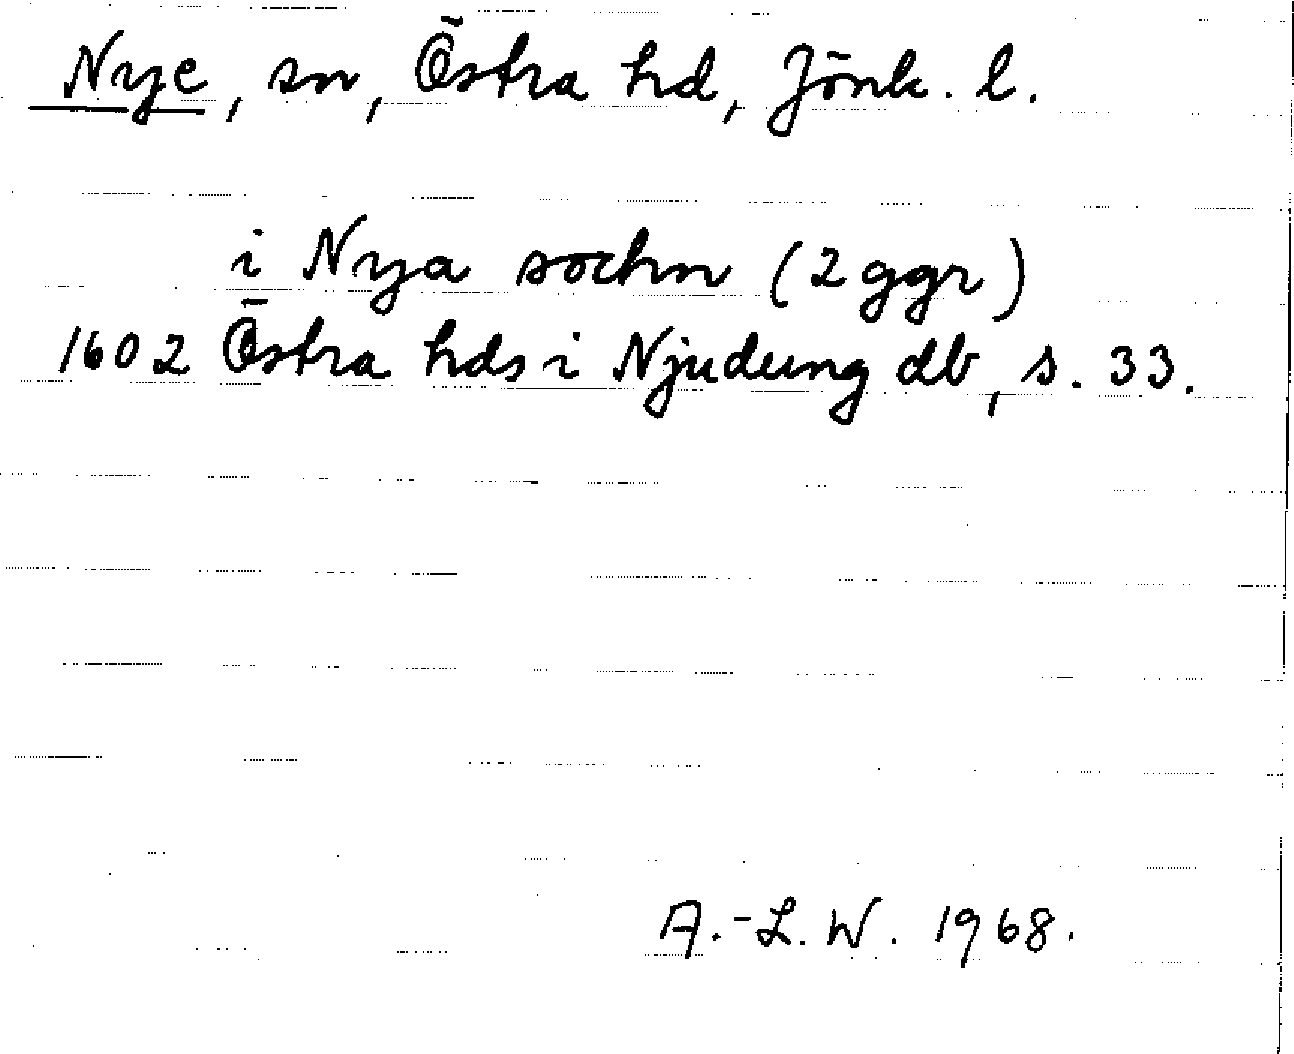 Nye, sn, Östra hd, Jönk. l.
i Nya sochn (2 ggr)
1602 Östra hds i Njudung db, s. 33.
A.-L. W. 1968.